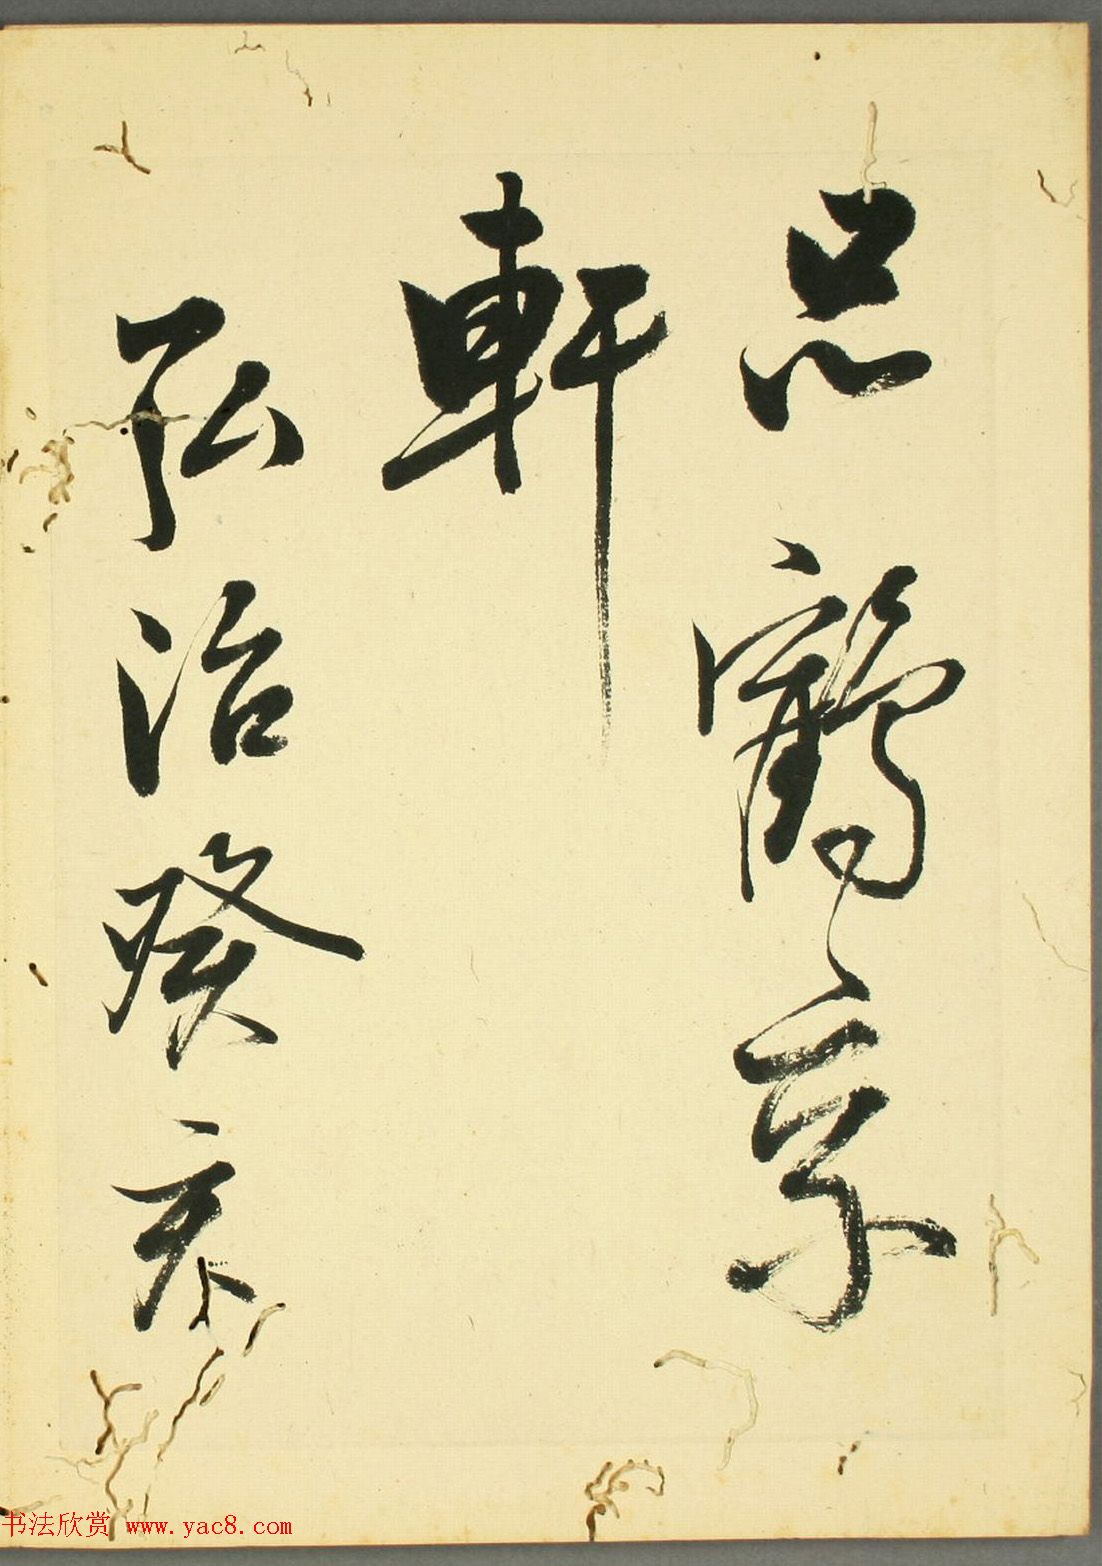 品鶴亭
軒
弘治癸亥
书法欣赏 www.yac8.com